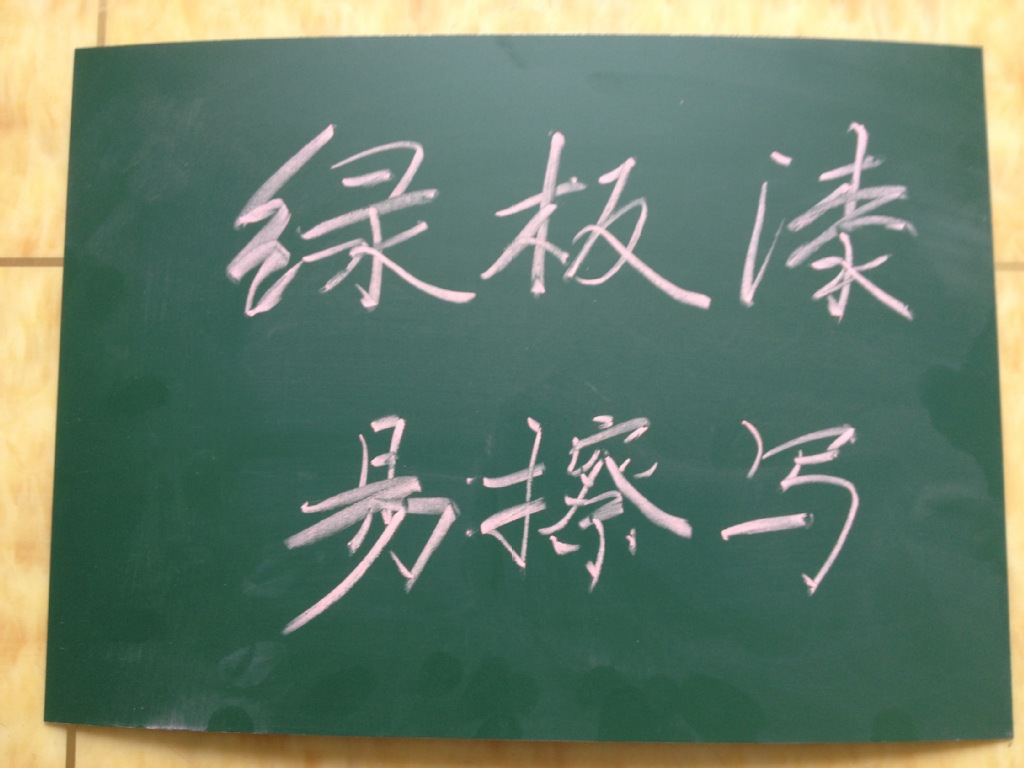 绿板漆
易擦写